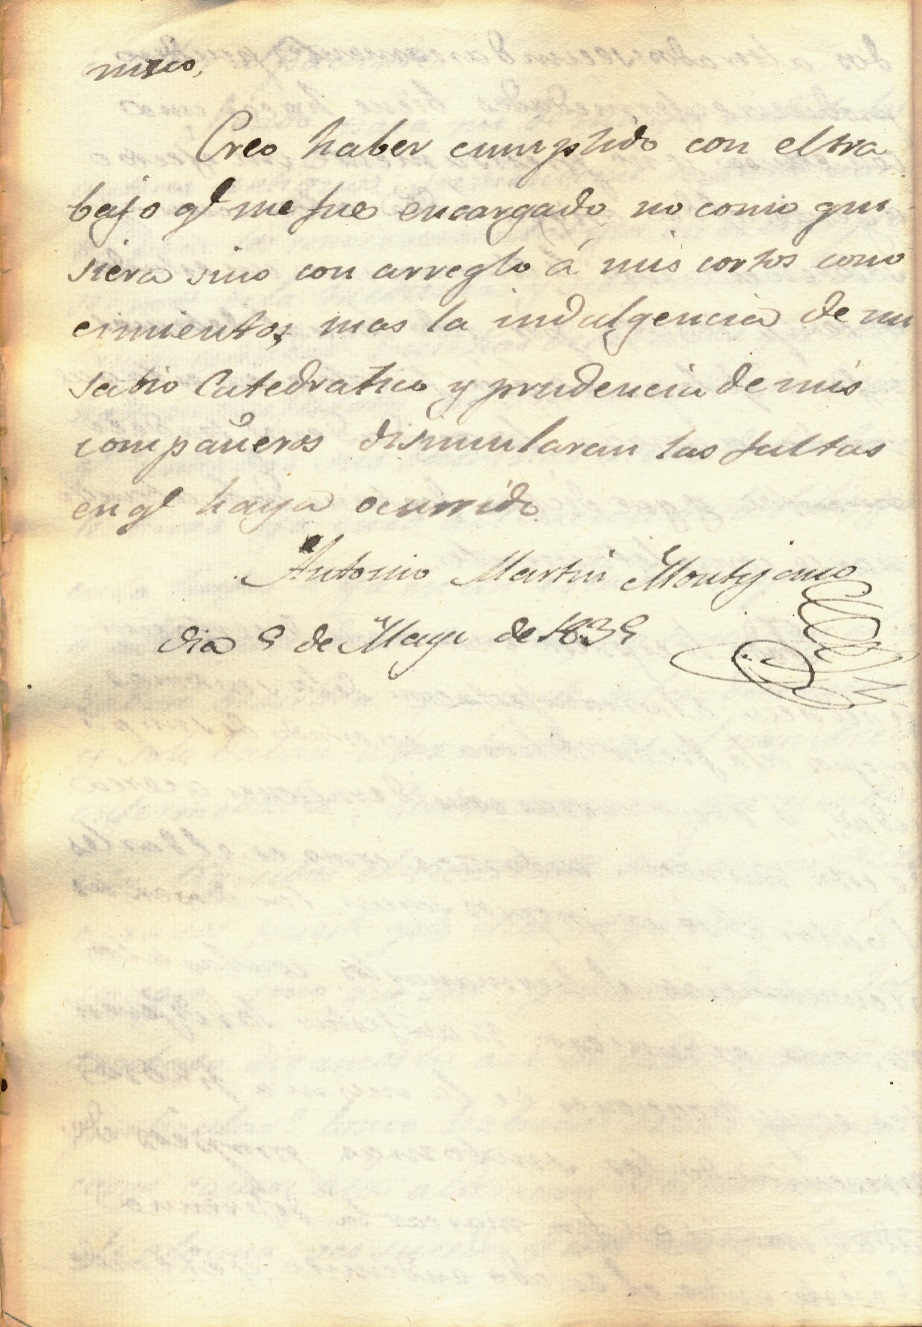 Creo haber cumplido con el tra
bajo qe me fue encargado no como qui
siera sino con arreglo á mis cortos cono
cimientos, mas la indulgencia de mi
sabio Catedratico y prudencia de mis
compañeros disimularan las faltas
en qe haya ocurrido
Antonio Martin Montijano
dia 9 de Mayo de 1839